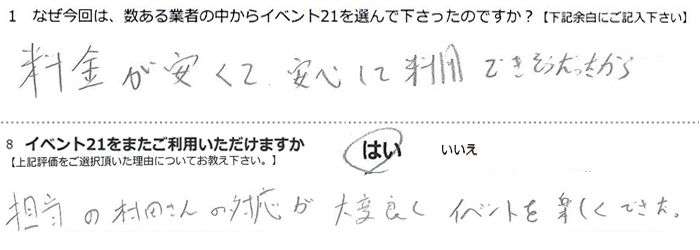 1 なぜ今回は、数ある業者の中からイベント21を選んで下さったのですか？【下記余白にご記入下さい】
料金が安くて、安心して利用できそうだったから
8 イベント21をまたご利用いただけますか はい いいえ
【上記評価をご選択頂いた理由についてお教え下さい。】
担当の村田さんの対応が大変良くイベントを楽しくできた。